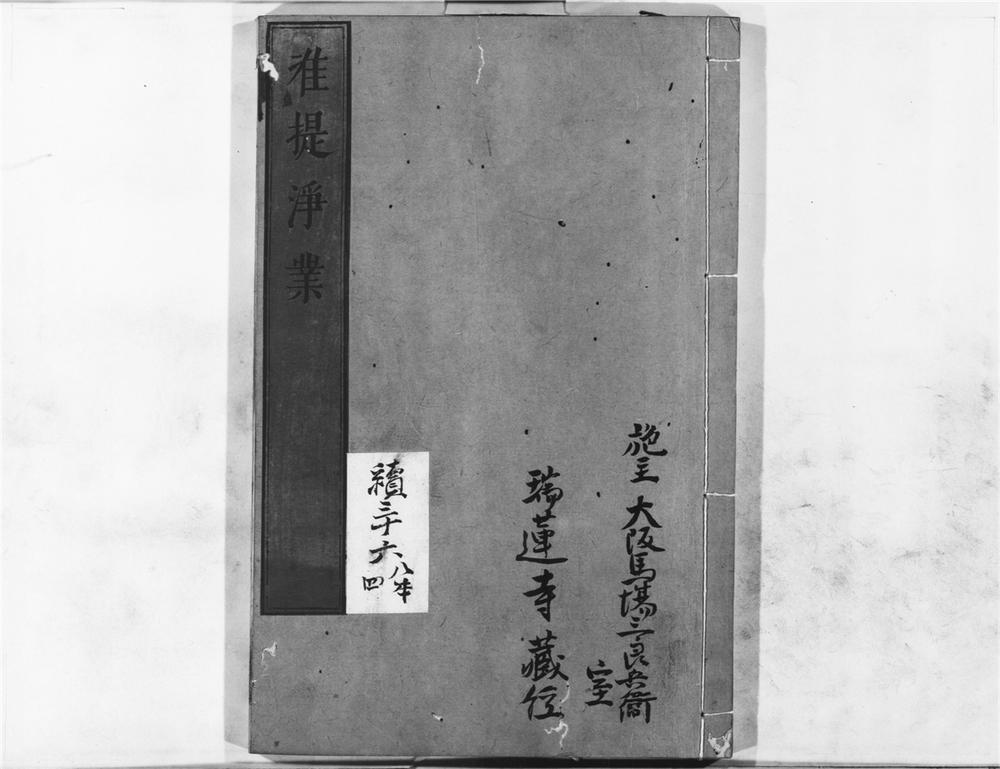 施主 大阪馬場三良兵衞
室
瑞蓮寺藏
續三十六
八本
四
准提淨業